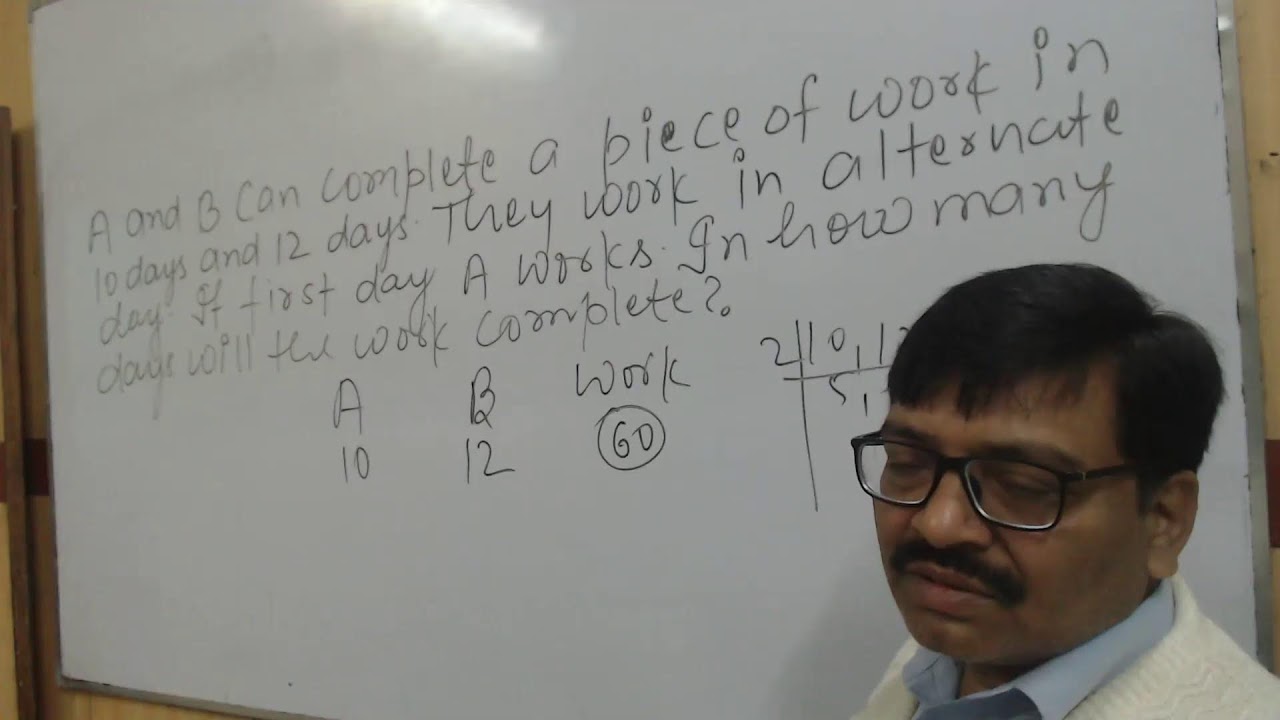 A and B can complete a piece of work in
10 days and 12 days. They work in alternate
day. If first day A works. In how many
days will the work complete?
A B work
10 12 60
2 10, 1
5,